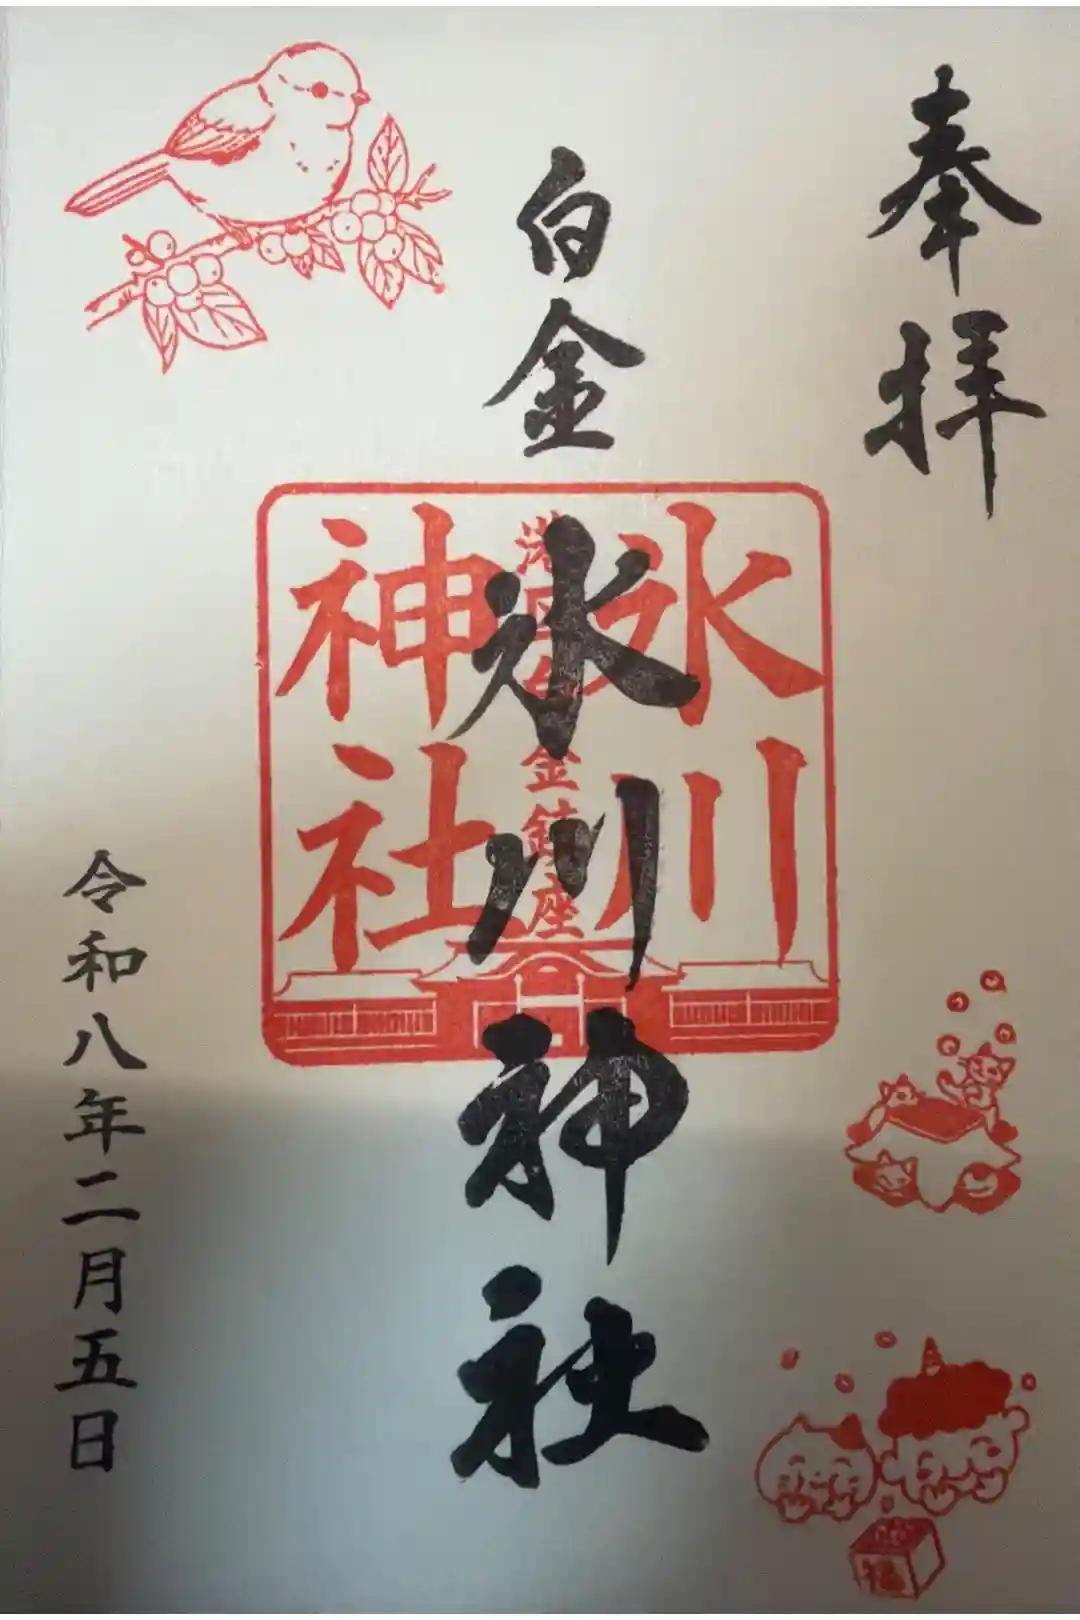 奉拝
白金
氷川神社
氷川
神社
港区白金鎮座
令和八年二月五日
福